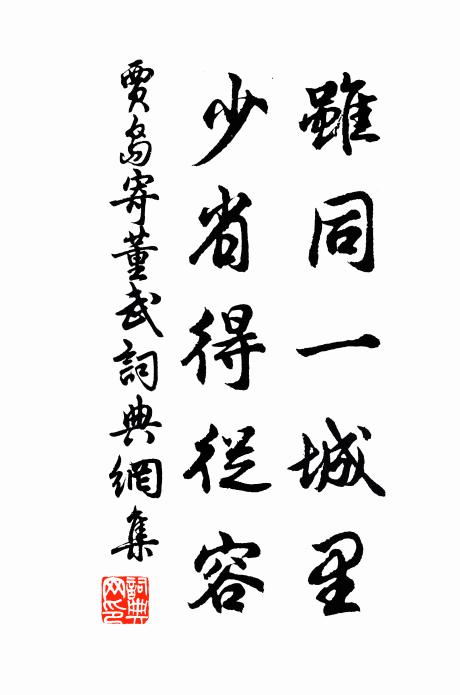 雖同一城里
少省得從容
賈島寄董武詞典網集
詞典網印